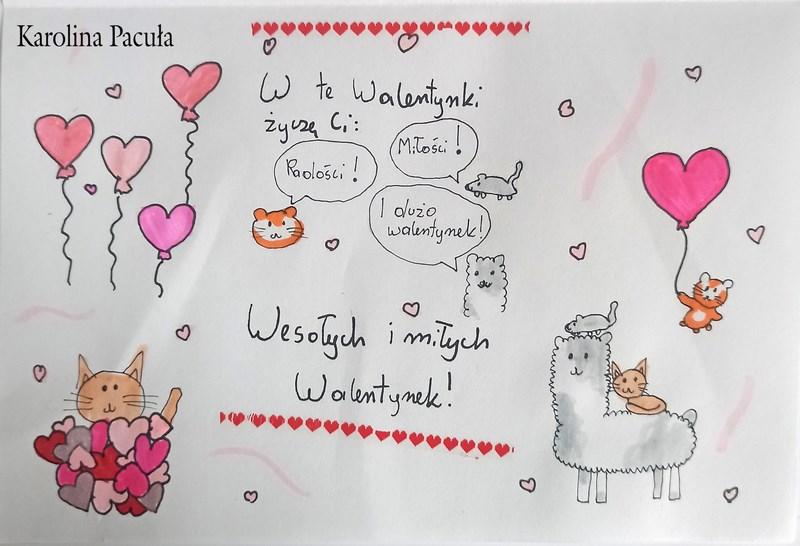 Karolina Pacuła
W te Walentynki
życzą Ci:
Radości!
Miłości!
I dużo
walentynek!
Wesołych i miłych
Walentynek!